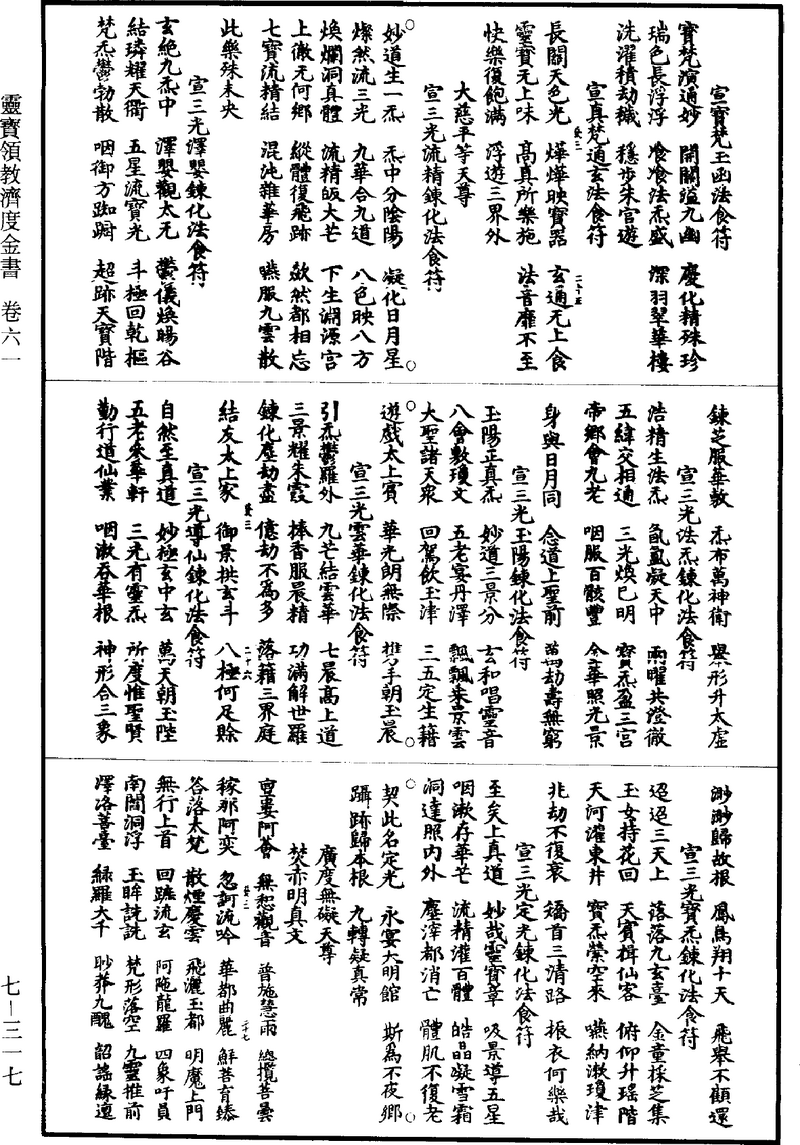 靈寶領教濟度金書　卷六一
七—三一七
宣寶梵玉函法食符
寶梵演通妙　開闔溢九幽　慶化精殊珍
瑞色長浮浮　飡飡法炁盛　深羽翠華樓
洗濯積劫穢　穩步朱宮遊
宣真梵通玄法食符
長闇天色光　燁燁映寶器　玄通无上食
靈寶无上味　高真所樂施　法音靡不至
快樂復飽滿　浮遊三界外
大慈平等天尊
宣三光流精鍊化法食符
妙道生一炁　炁中分陰陽　凝化日月星
燦然流三光　九華合九道　八色映八方
煥爛洞真體　流精皈大芒　下生淵源宮
上徹无何鄉　縱體復飛跡　斂然都相忘
七寶流精結　混沌雜華房　嚥服九雲散
此樂殊未央
宣三光澤嬰鍊化法食符
玄絶九炁中　澤嬰觀太无　鬱儀煥暘谷
結璘耀天衢　五星流寶光　斗極回乾樞
梵炁鬱勃散　咽御方踟蹰　超跡天寶階
鍊芝服華敷　炁布萬神衛　舉形升太虛
宣三光法炁鍊化法食符
浩精生法炁　氤氲凝天中　兩曜共澄徹
五緯交相通　三光煥已明　寶炁盈三宮
帝鄉會九老　咽服百骸豐　金華照光景
身與日月同　念道上聖前　萬劫壽無窮
宣三光玉陽鍊化法食符
玉陽正真炁　妙道三景分　玄和唱靈音
八會敷瓊文　五老宴丹澤　飄飄乘景雲
大聖諸天衆　回駕飲玉津　三五定生籍
遊戲太上賓　華光朗無際　携手朝玉晨
宣三光雲華鍊化法食符
引炁鬱羅外　九芒結雲華　七晨高上道
三景耀朱霞　捧香服晨精　功滿解世羅
鍊化塵劫盡　億劫不為多　落籍三界庭
結友太上家　御景拱玄斗　八極何足賒
宣三光導仙鍊化法食符
自然至真道　妙極玄中玄　萬天朝玉陛
五老來華軒　三光有靈炁　所度惟聖賢
勤行道仙業　咽漱吞華根　神形合三象
渺渺歸故根　鳳鳥翔十天　飛舉不顧還
宣三光寶炁鍊化法食符
迢迢三天上　落落九玄臺　金童採芝集
玉女持花回　天賓揖仙客　俯仰升瑤階
天河灌東井　寶炁縈空來　嚥納漱瓊津
兆劫不復衰　稽首三清路　振衣何樂哉
宣三光定光鍊化法食符
至矣上真道　妙哉靈寶章　吸景導五星
咽漱存華芒　流精灌百體　皓晶凝雪霜
洞達照內外　塵滓都消亡　體肌不復老
契此名定光　永宴大明館　斯為不夜鄉
躡跡歸本根　九轉疑真常
廣度無礙天尊
焚赤明真文
亶婁阿薈　無惒觀音　普施慧雨　總攬菩曇
稼那阿奕　忽訶流吟　華都曲麗　鮮菩育臻
答落大梵　散煙慶雲　飛灑玉都　明魔上門
無行上首　回蹠流玄　阿陁龍羅　四象吁員
南閻洞浮　玉眸詵詵　梵形落空　九靈推前
澤洛菩臺　緑羅大千　眇莽九醜　韶謡緣邅